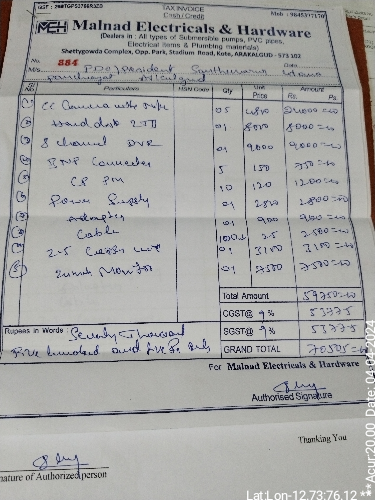 TAX INVOICE
Cash / Credit
Mob : 9845377170
MEH Malnad Electricals & Hardware
(Dealers in : All types of Submersible pumps, PVC pipes,
Electrical Items & Plumbing materials)
Shettygowda Complex, Opp. Park, Stadium Road, Kote, ARAKALGUD - 573 102
No. 884
Date
M/s. PDO/president
Particulars HSN Code Qty Unit Price Amount Rs. Ps.
CC Camera with 05 4800 24000=00
Hard disk 2TB 01 8000 8000=00
8 channel DVR 01 9000 9000=00
BNP Connecter 5 150 750=00
10 120 1200=00
Power Supply 01 2800 2800=00
01 900 900=00
Cable 25
01 3100 3100=00
Monitor 01 7500 7500=00
Total Amount 59750=00
CGST@ 9 % 5377.5
SGST@ 9 % 5377.5
Rupees in Words Seventy Thousand
Five hundred and five Rs only
GRAND TOTAL 70505=00
For Malnad Electricals & Hardware
Authorised Signature
Thanking You
nature of Authorized person
Lat:Lon-12.73:76.12
04.04.2024